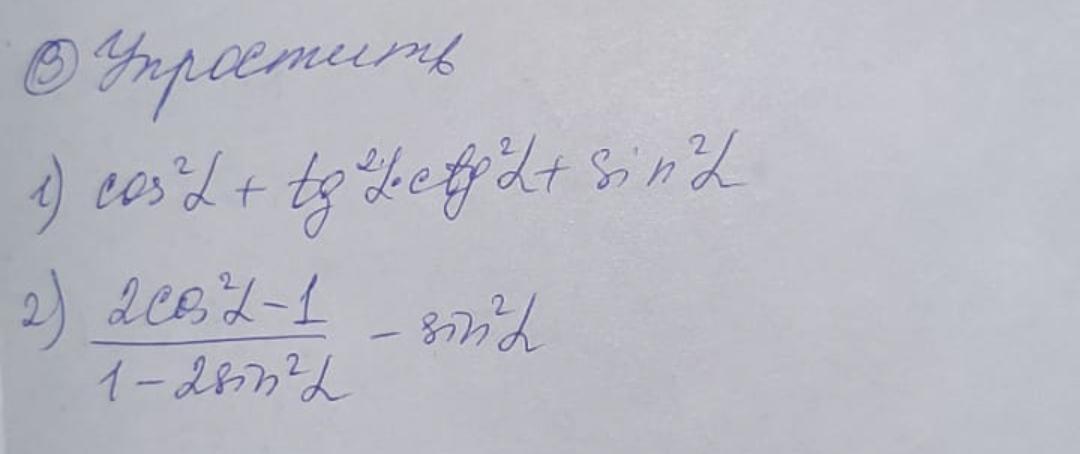 ③ Упростить
1) cos²α + tg²α·ctg²α + sin²α
2) (2cos²α-1)/(1-2sin²α) - sin²α